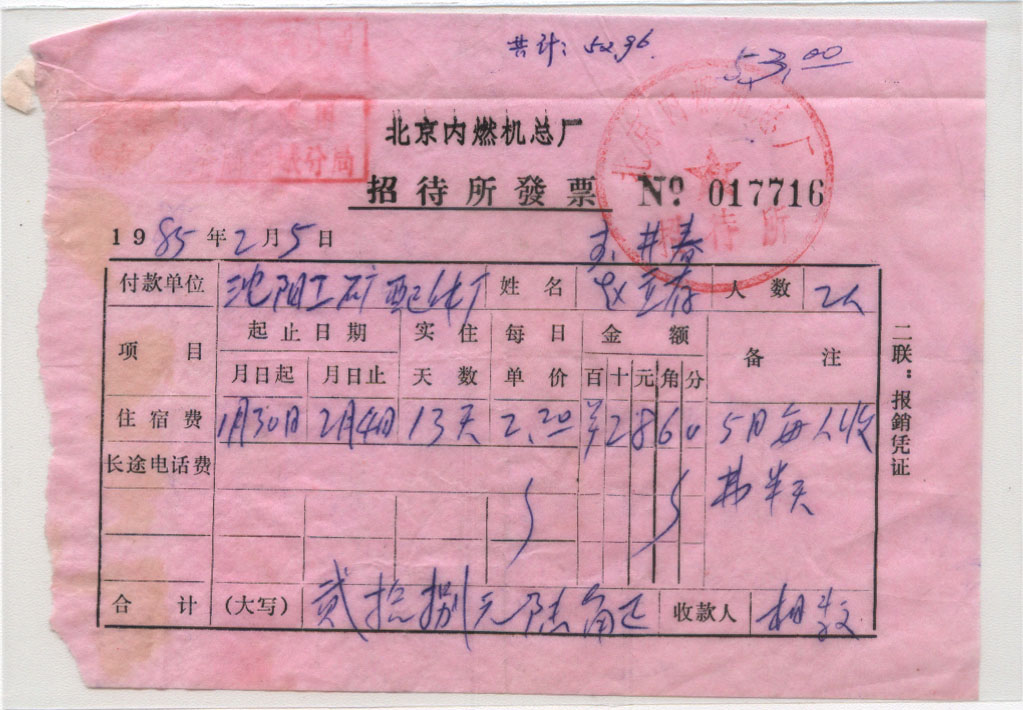 共计: 52.96
53.00
北京内燃机总厂
北京内燃机总厂
招待所
招待所發票 № 017716
1985年2月5日
井春
付款单位 沈阳工矿配件厂 姓名 人数 2人
项目 起止日期 实住天数 每日单价 金额 备注
月日起 月日止 百十元角分
住宿费 1月30日 2月4日 13天 2.20 28 6 0 5日每人收
长途电话费 费半天
合计 (大写) 贰拾捌元陆角正 收款人
二联：报銷凭证
分局